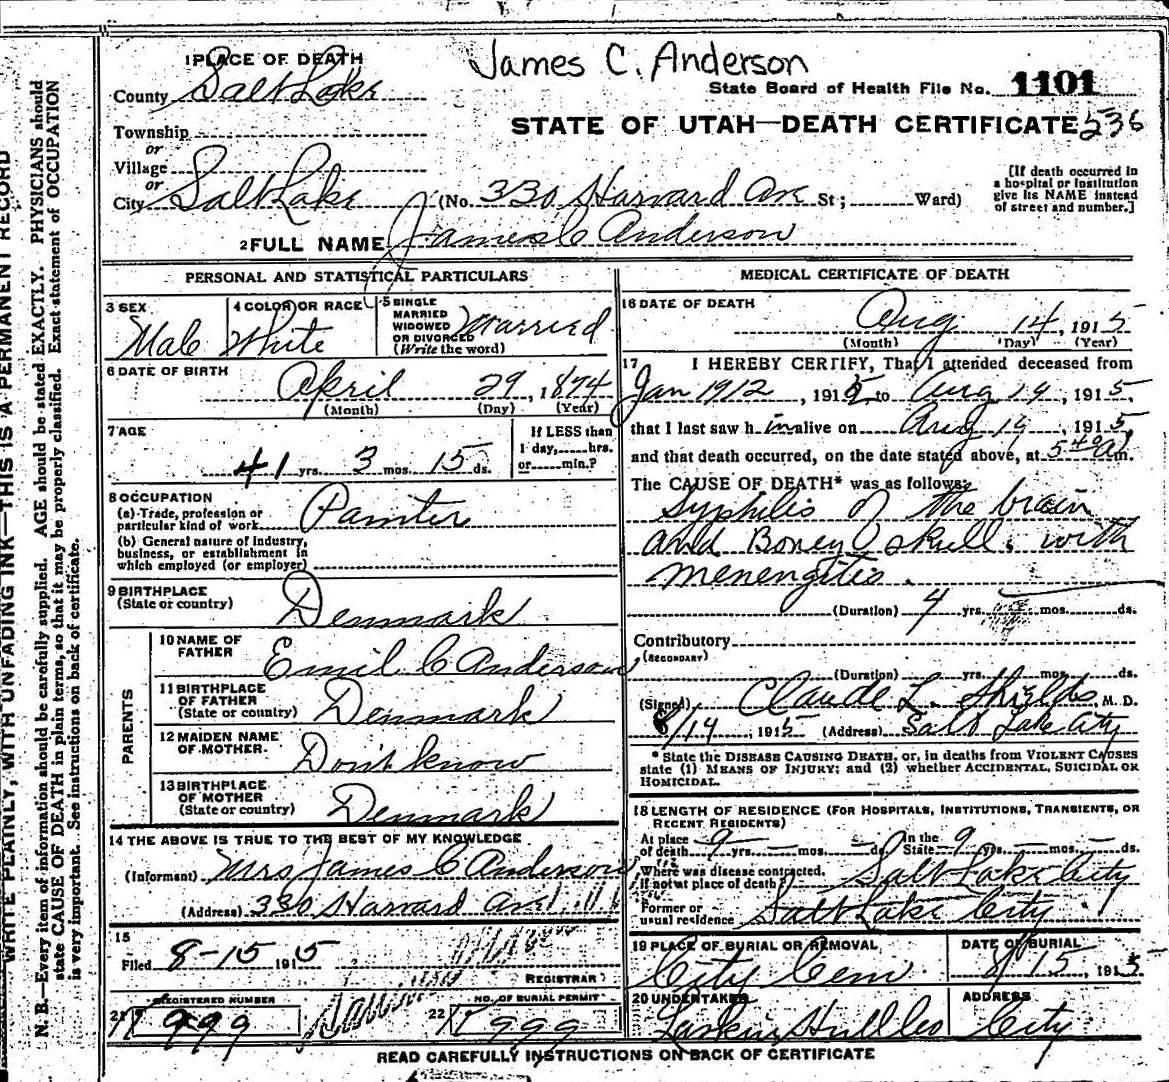 James C. Anderson
1 PLACE OF DEATH
County Salt Lake
State Board of Health File No. 1101
STATE OF UTAH—DEATH CERTIFICATE 536
Township
or
Village
or
City Salt Lake (No. 330 Harvard Ave St; Ward)
[If death occurred in
a hospital or institution
give its NAME instead
of street and number.]
2 FULL NAME James C Anderson
PERSONAL AND STATISTICAL PARTICULARS
3 SEX
Male
4 COLOR OR RACE
White
5 SINGLE
MARRIED
WIDOWED
OR DIVORCED
(Write the word)
Married
6 DATE OF BIRTH
April 29, 1874
(Month) (Day) (Year)
7 AGE
41 yrs. 3 mos. 15 ds.
If LESS than
1 day, hrs.
or min.?
8 OCCUPATION
(a) Trade, profession or
particular kind of work Painter
(b) General nature of industry,
business, or establishment in
which employed (or employer)
9 BIRTHPLACE
(State or country)
Denmark
PARENTS
10 NAME OF
FATHER
Emil C Anderson
11 BIRTHPLACE
OF FATHER
(State or country)
Denmark
12 MAIDEN NAME
OF MOTHER
Don't know
13 BIRTHPLACE
OF MOTHER
(State or country)
Denmark
14 THE ABOVE IS TRUE TO THE BEST OF MY KNOWLEDGE
(Informant) Mrs James C Anderson
(Address) 330 Harvard Ave
15
Filed 8-15 1915
REGISTRAR
21 REGISTERED NUMBER
999
22 NO. OF BURIAL PERMIT
999
MEDICAL CERTIFICATE OF DEATH
16 DATE OF DEATH
Aug 14, 1915
(Month) (Day) (Year)
17 I HEREBY CERTIFY, That I attended deceased from
Jan 1912, 191 to Aug 14, 1915,
that I last saw him alive on Aug 14, 1915,
and that death occurred, on the date stated above, at 5 40 a m.
The CAUSE OF DEATH* was as follows:
Syphilis of the brain
and Boney skull. with
menengitis.
(Duration) 4 yrs. mos. ds.
Contributory
(SECONDARY)
(Duration) yrs. mos. ds.
(Signed) Claude L. Shields, M. D.
8/14, 1915 (Address) Salt Lake City
* State the DISEASE CAUSING DEATH, or, in deaths from VIOLENT CAUSES
state (1) MEANS OF INJURY; and (2) whether ACCIDENTAL, SUICIDAL OR
HOMICIDAL.
18 LENGTH OF RESIDENCE (FOR HOSPITALS, INSTITUTIONS, TRANSIENTS, OR
RECENT RESIDENTS)
At place In the
of death 9 yrs. — mos. — ds. State 9 yrs. — mos. — ds.
Where was disease contracted,
if not at place of death? Salt Lake City
Former or
usual residence Salt Lake City
19 PLACE OF BURIAL OR REMOVAL
City Cem.
DATE OF BURIAL
8/15, 1915
20 UNDERTAKER
Larkin Hull Co
ADDRESS
City
READ CAREFULLY INSTRUCTIONS ON BACK OF CERTIFICATE
WRITE PLAINLY, WITH UNFADING INK—THIS IS A PERMANENT RECORD
N. B.—Every item of information should be carefully supplied. AGE should be stated EXACTLY. PHYSICIANS should
state CAUSE OF DEATH in plain terms, so that it may be properly classified. Exact statement of OCCUPATION
is very important. See instructions on back of certificate.